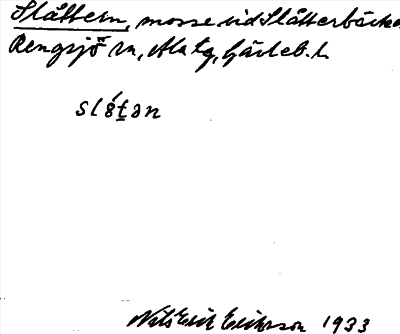 Slåttern, mosse vid Slåtterbäcken
Rengsjö sn, Ala tg, Gävleb. l.
slǻtən
Nils Erik Erikson 1933